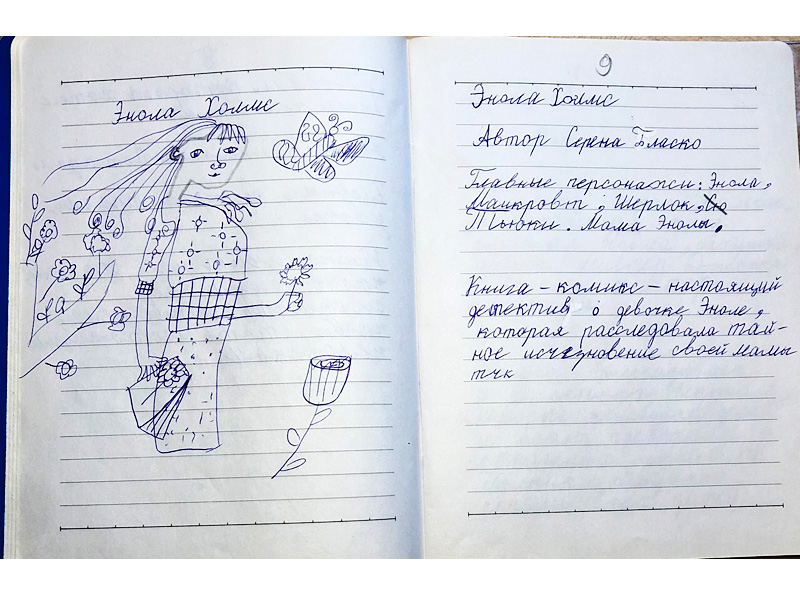 Энола Холмс
9
Энола Холмс
Автор Серена Бласко
Главные персонажи: Энола,
Майкровт, Шерлок,
Тьюки. Мама Энолы.
Книга – комикс – настоящий
детектив о девочке Эноле,
которая расследовала тай-
ное исчезновение своей мамы
тчк